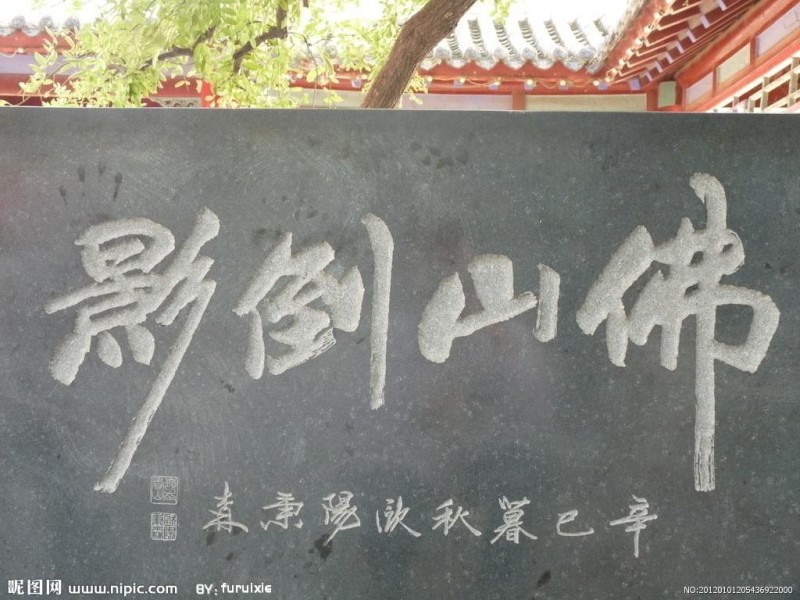 佛山倒影
辛巳暮秋欧陽秉森
昵图网 www.nipic.com BY: furuixie
NO:20120101205436922000